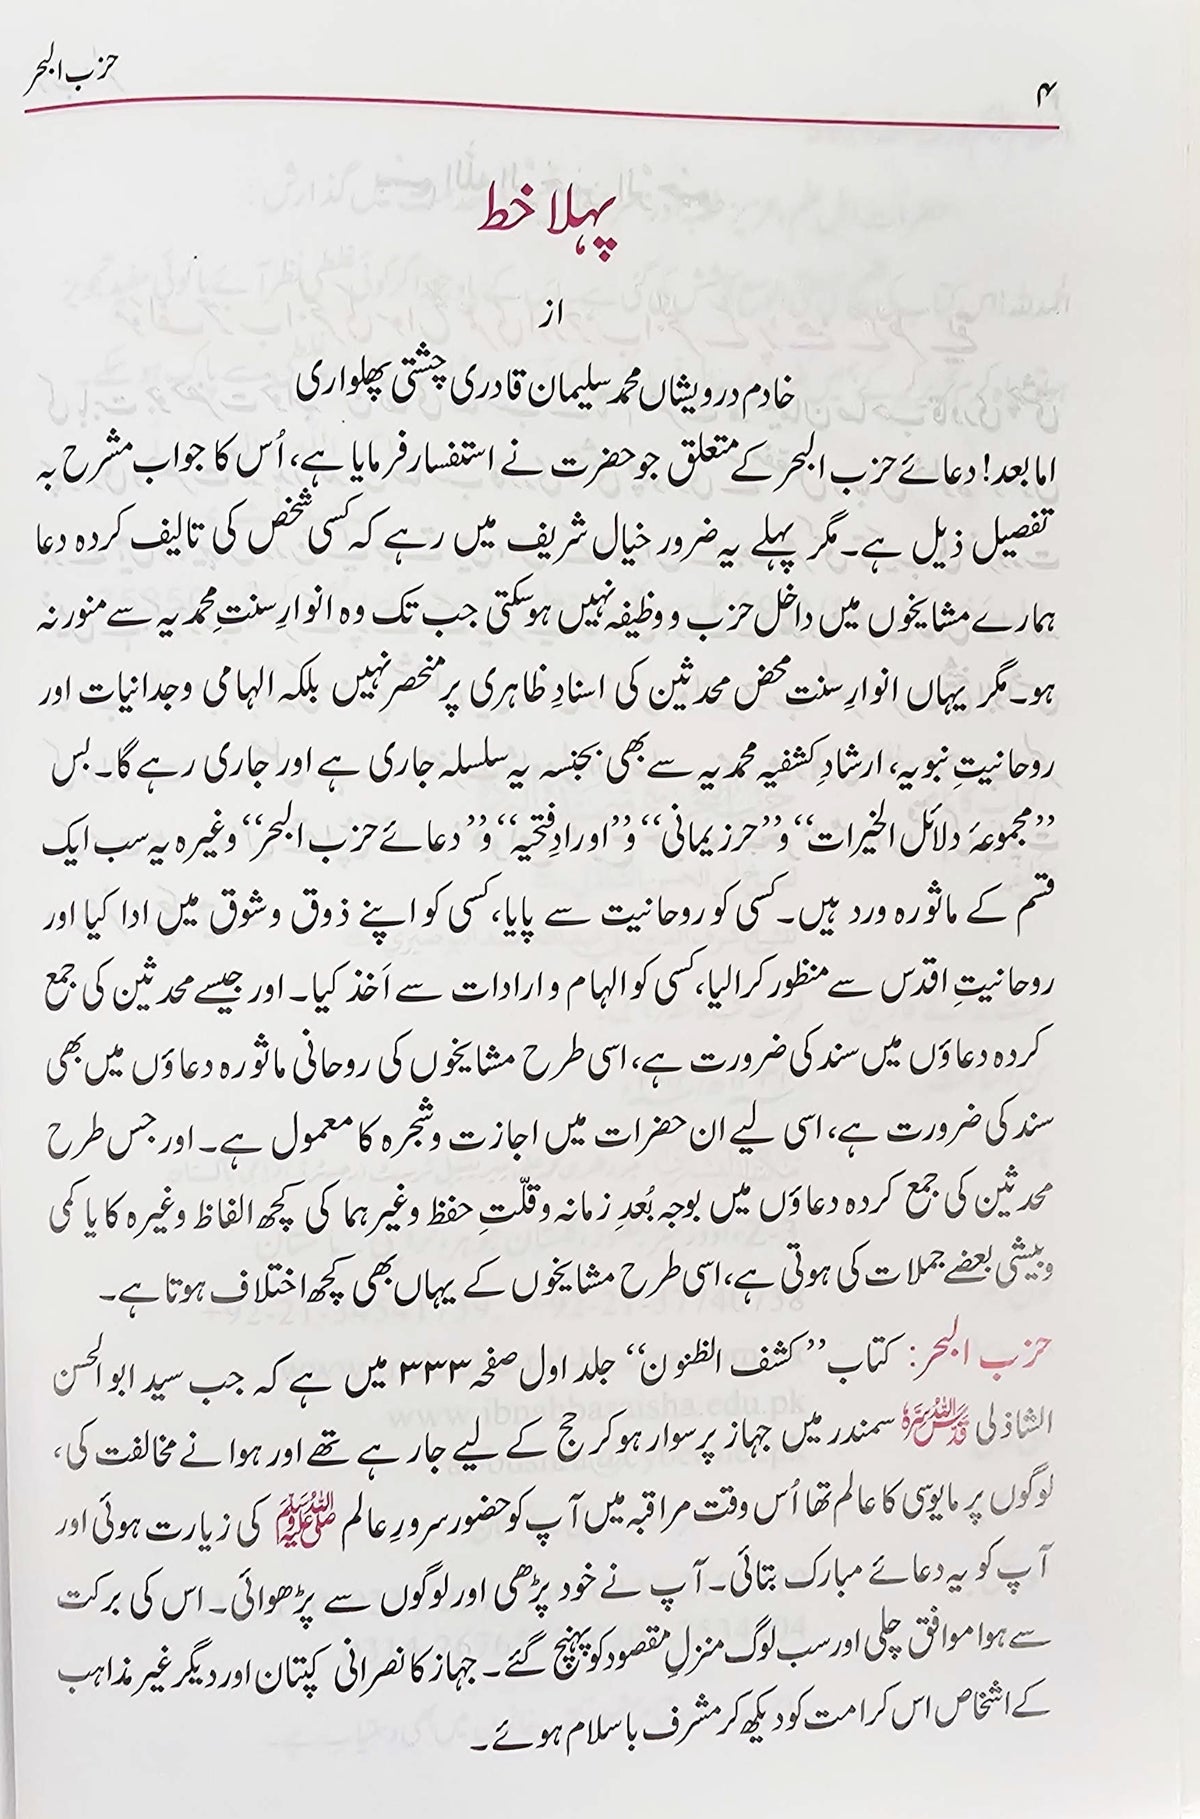 ۴
حزب البحر
پہلا خط
از
خادم درویشاں محمد سلیمان قادری چشتی پھلواری
اما بعد! دعائے حزب البحر کے متعلق جو حضرت نے استفسار فرمایا ہے، اُس کا جواب مشرح بہ
تفصیل ذیل ہے۔ مگر پہلے یہ ضرور خیال شریف میں رہے کہ کسی شخص کی تالیف کردہ دعا
ہمارے مشایخوں میں داخل حزب و وظیفہ نہیں ہوسکتی جب تک وہ انوارِ سنتِ محمدیہ سے منور نہ
ہو۔ مگر یہاں انوارِ سنت محض محدثین کی اسنادِ ظاہری پر منحصر نہیں بلکہ الہامی وجدانیات اور
روحانیتِ نبویہ، ارشادِ کشفیہ محمدیہ سے بھی بجنسہ یہ سلسلہ جاری ہے اور جاری رہے گا۔ بس
”مجموعۂ دلائل الخیرات“ و”حرز یمانی“ و”اورادِ فتحیہ“ و”دعائے حزب البحر“ وغیرہ یہ سب ایک
قسم کے ماثورہ ورد ہیں۔ کسی کو روحانیت سے پایا، کسی کو اپنے ذوق و شوق میں ادا کیا اور
روحانیتِ اقدس سے منظور کرالیا، کسی کو الہام و ارادات سے اَخذ کیا۔ اور جیسے محدثین کی جمع
کردہ دعاؤں میں سند کی ضرورت ہے، اسی طرح مشایخوں کی روحانی ماثورہ دعاؤں میں بھی
سند کی ضرورت ہے، اسی لیے ان حضرات میں اجازت و شجرہ کا معمول ہے۔ اور جس طرح
محدثین کی جمع کردہ دعاؤں میں بوجہ بُعدِ زمانہ و قلّتِ حفظ وغیرہما کی کچھ الفاظ وغیرہ کا یا کمی
و بیشی بعضے جملات کی ہوتی ہے، اسی طرح مشایخوں کے یہاں بھی کچھ اختلاف ہوتا ہے۔
حزب البحر: کتاب ”کشف الظنون“ جلد اول صفحہ ۳۳۳ میں ہے کہ جب سید ابو الحسن
الشاذلی قدس اللہ سرہ سمندر میں جہاز پر سوار ہوکر حج کے لیے جارہے تھے اور ہوا نے مخالفت کی،
لوگوں پر مایوسی کا عالم تھا اُس وقت مراقبہ میں آپ کو حضور سرورِ عالم ﷺ کی زیارت ہوئی اور
آپ کو یہ دعائے مبارک بتائی۔ آپ نے خود پڑھی اور لوگوں سے پڑھوائی۔ اس کی برکت
سے ہوا موافق چلی اور سب لوگ منزلِ مقصود کو پہنچ گئے۔ جہاز کا نصرانی کپتان اور دیگر غیر مذاہب
کے اشخاص اس کرامت کو دیکھ کر مشرف باسلام ہوئے۔